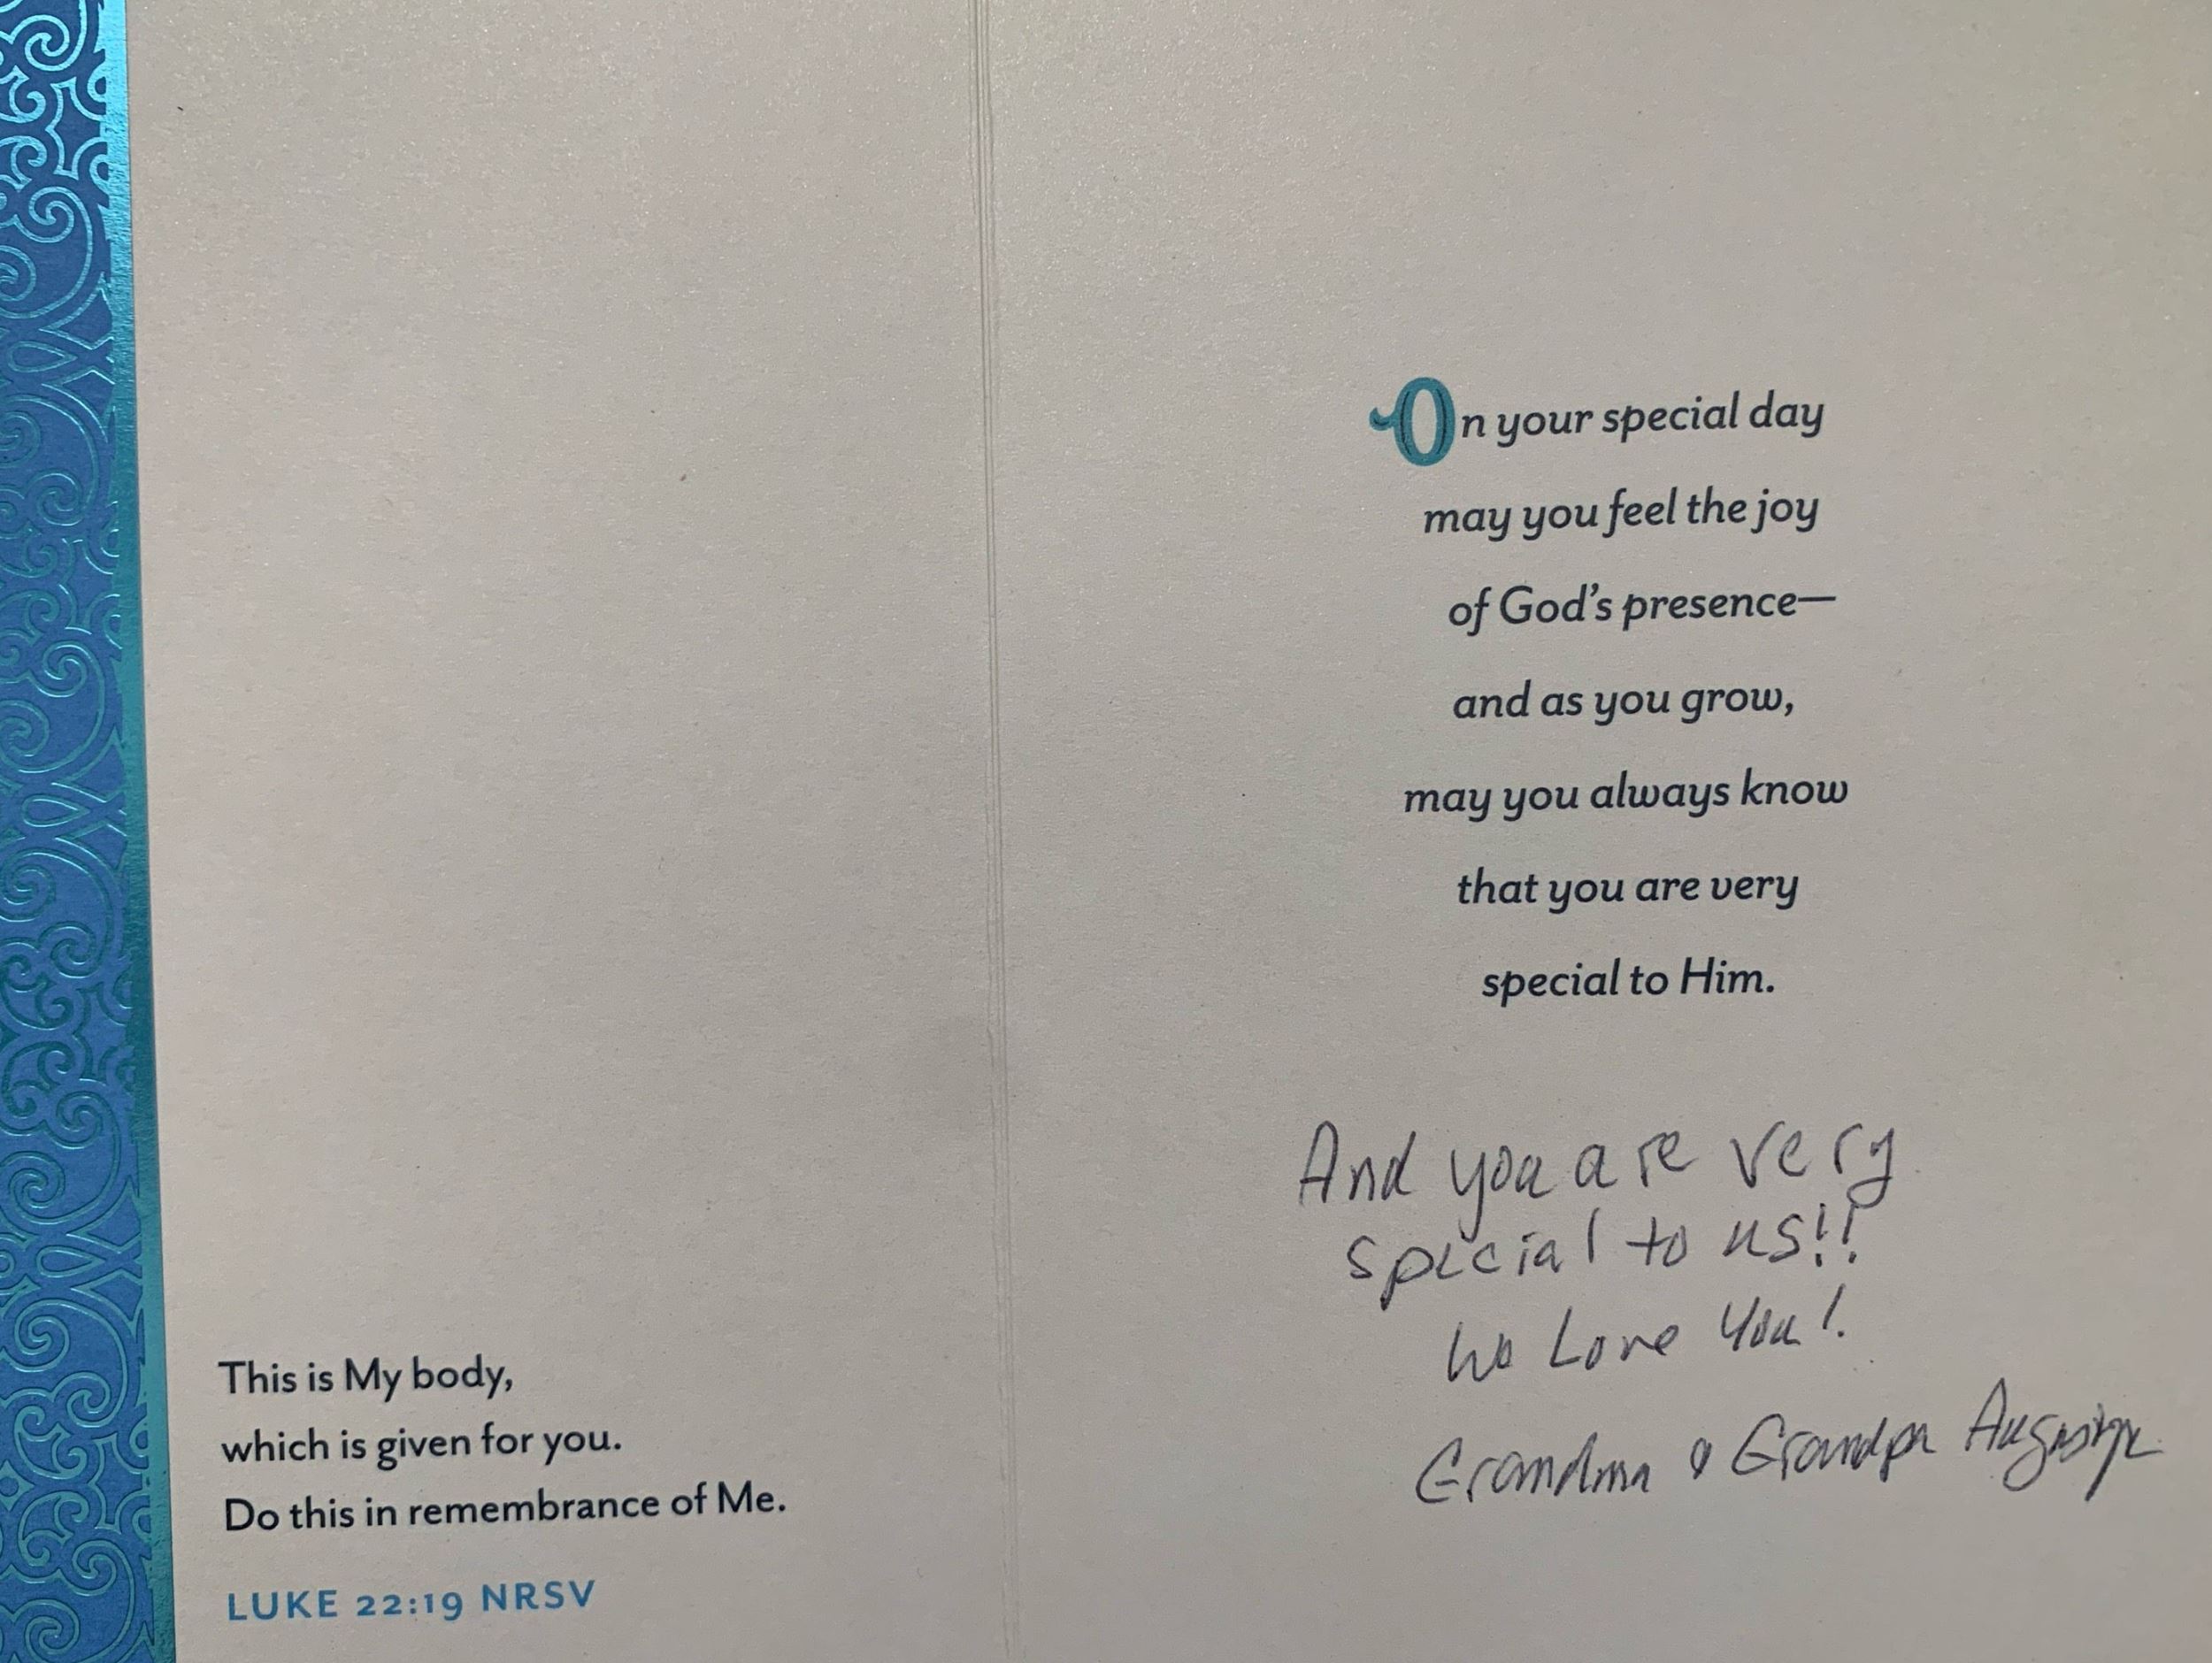 This is My body,
which is given for you.
Do this in remembrance of Me.
LUKE 22:19 NRSV
On your special day
may you feel the joy
of God's presence—
and as you grow,
may you always know
that you are very
special to Him.
And you are very
special to us!!
We Love You!
Grandma & Grandpa Augustyn